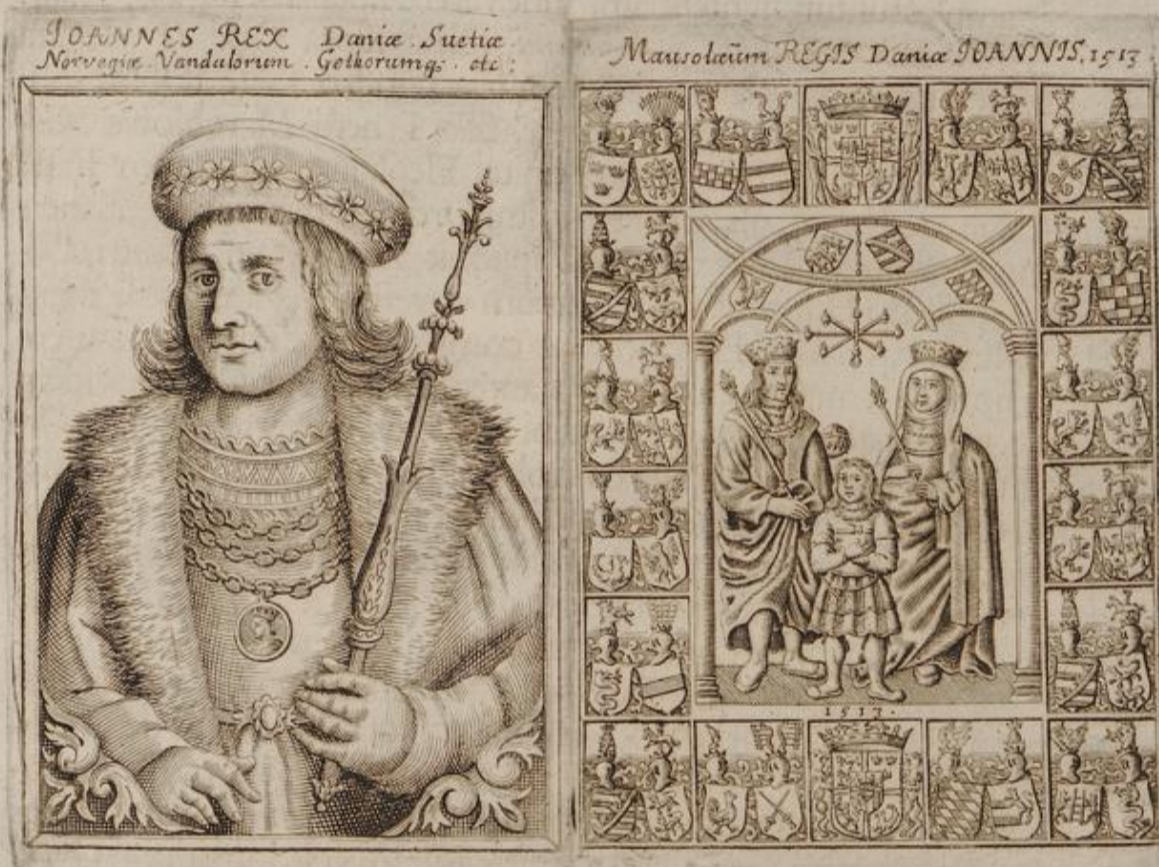 IOANNES REX Daniæ. Suetiæ.
Norvegiæ. Vandalorum. Gothorumq; etc;
Mausolæum REGIS Daniæ IOANNIS. 1513
1513.